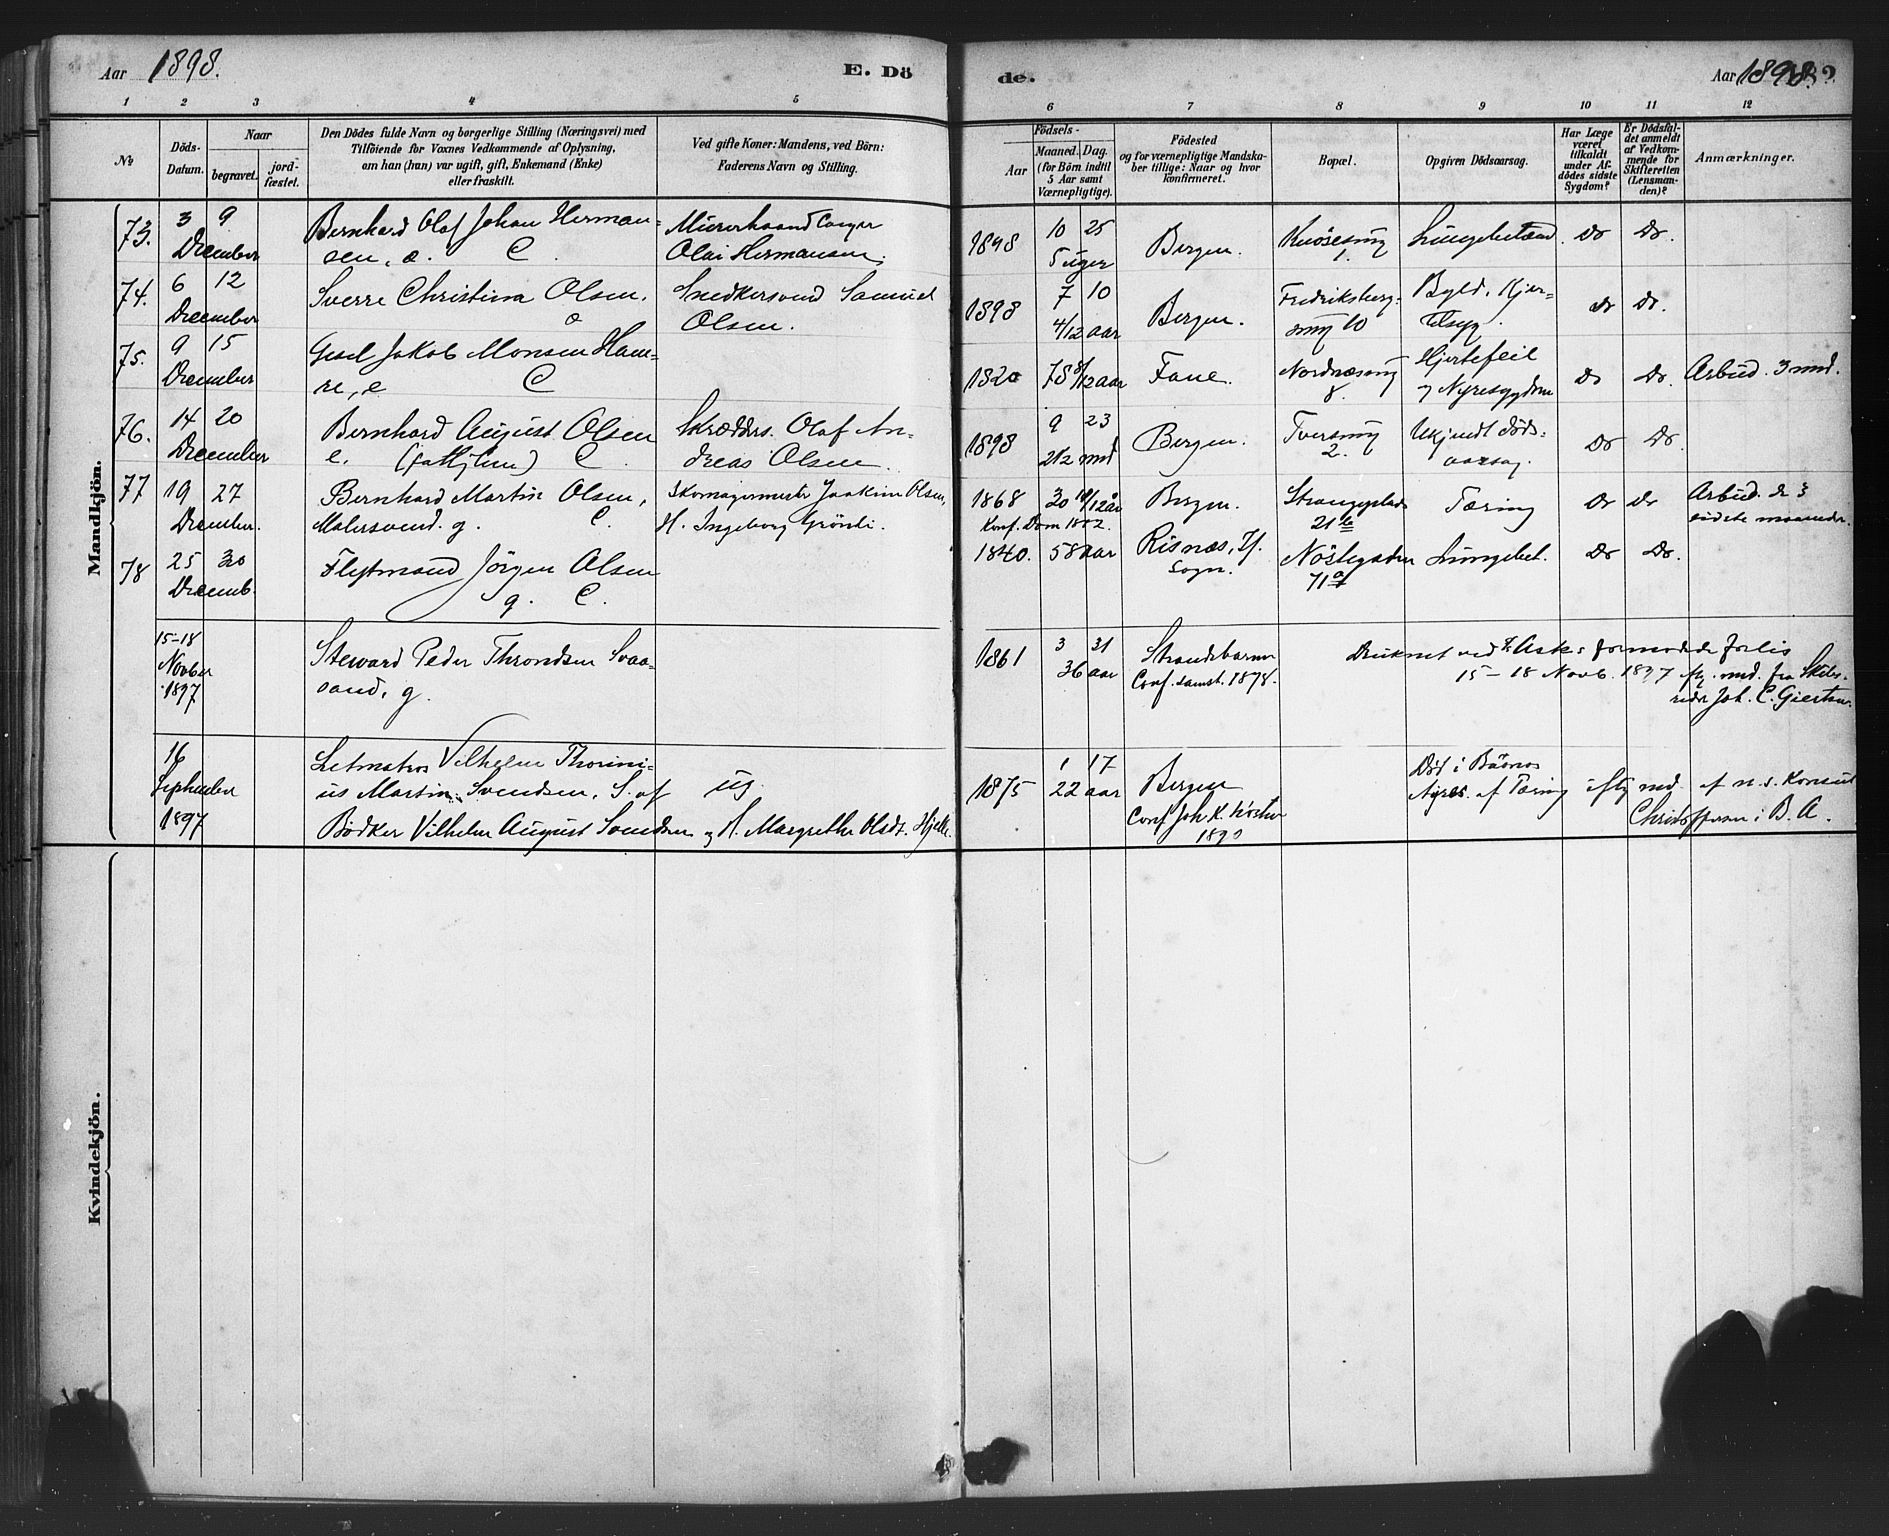 Aar 1898.
E. Dö
de.
Aar 1898.
1 2 3 4 5 6 7 8 9 10 11 12
No
Döds-
Datum.
Naar
begravet.
jord-
fæstet.
Den Dödes fulde Navn og borgerlige Stilling (Næringsvei) med
Tilföiende for Voxnes Vedkommende af Oplysning,
om han (hun) var ugift, gift, Enkemand (Enke)
eller fraskilt.
Ved gifte Koner: Mandens, ved Börn:
Faderens Navn og Stilling.
Födsels-
Aar
Maaned. Dag.
(for Börn indtil
5 Aar samt
Værnepligtige).
Födested
og for værnepligtige Mandska-
ber tillige: Naar og hvor
konfirmeret.
Bopæl.
Opgiven Dödsaarsag.
Har Læge
været
tilkaldt
under Af-
dödes sidste
Sygdom?
Er Dödsfal-
det anmeldt
af Vedkom-
mende for
Skifteretten
(Lensman-
den)?
Anmærkninger.
Mandkjön.
73. 3 9 December
Bernhard Olaf Johan Herman-
sen, C.
Olai Hermansen.
1898 10 25
5 uger
Bergen.
1.
74. 6 12 December
Sverre Christian Olsen.
Snedkersvend Samuel
Olsen.
1898 7 10
4/12 aar
Bergen.
Fredriksberg-
smug 10
Byld, Hjer-
75. 9 15 December
Jakob Monsen Ham-
re, e C
1820 78 8/12 aar
Fane.
Nordnæsmug
8.
Hjertefeil
og Nyresygdom
Arbud. 3 md.
76. 14 20 December
Bernhard August Olsen
C.
Skrædders. Olaf An-
dreas Olsen.
1898 9 23
2 1/2 md
Bergen.
Tversmug
2.
Ukjendt Döds-
aarsag.
77 19 27 December.
Bernhard Martin Olsen,
Malersvend. g. C.
Skomagermester Joakim Olsen,
H. Ingeborg
1868 30 10/12 år
Konf. Dom 1882.
Bergen.
Tæring
Arbud. de 3
sidste maaneder.
78 25 30 Decemb.
Jörgen Olsen
g. C.
1840. 58 aar
Risnæs,
Sogn.
Nöstegaden
71 a
Lungebet.
15-18
Novber
1897
Steward Peder Throndsen Svaa-
sand, g.
1861 3 31
36 aar
Strandebarm
Conf. samst. 1878.
Druknet ved Asks formodede forlis
15-18 Novb. 1897 flg. md. fra Skibs-
reder Joh. C. Giertsen.
16
September
1897
Letmatros Vilhelm Thorini-
us Martin Svendsen, S. af
Bödker Vilhelm August Svendsen og H. Margrethe Olsdt. Hjelle.
ug.
1875 1 17
22 aar
Bergen
Conf. Joh. K.
1890
Död i Buenos
Ayres af Tæring iflg. md. af n. s. Konsul
Christophersen i B. A.
Kvindekjön.